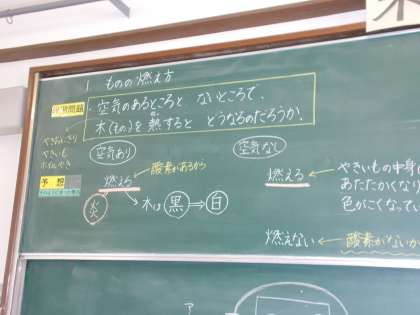 1 ものの燃え方
空気のあるところと ないところで、
木(もの)を熱すると どうなるのだろうか。
やきいも
予想
空気あり
空気なし
燃える
酸素があるから
炎
木は黒⇒白
燃える
やきいもの中身
あたたかくな
色がこくなってい
燃えない
酸素がないか
ア